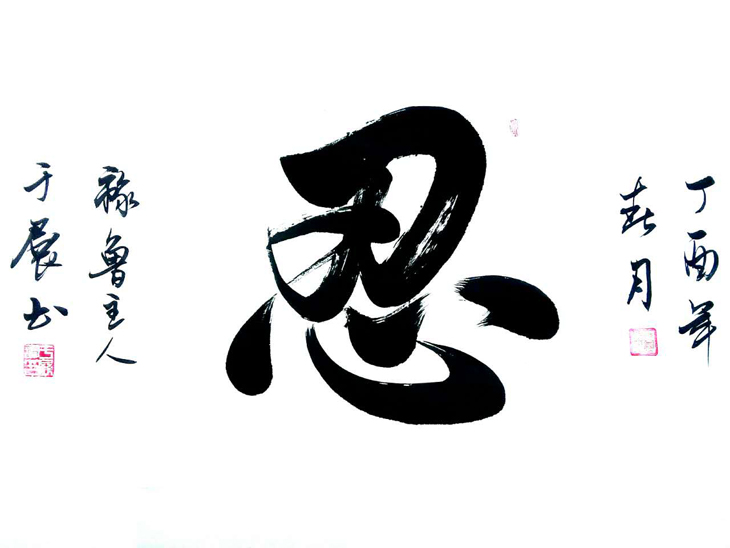 丁酉年
春月
忍
禄鲁主人
于晨书